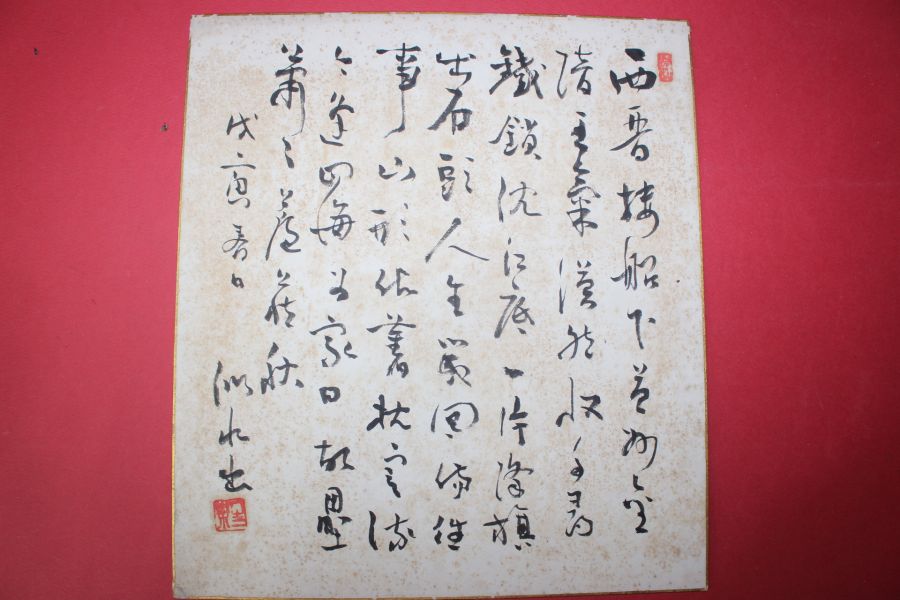 西晋楼船下益州金
陵王氣漠然收千尋
鐵鎖沈江底一片降旗
出石頭人生幾回傷往
事山形依舊枕寒流
今逢四海為家日故壘
蕭々蘆荻秋
戊寅春日
似水書